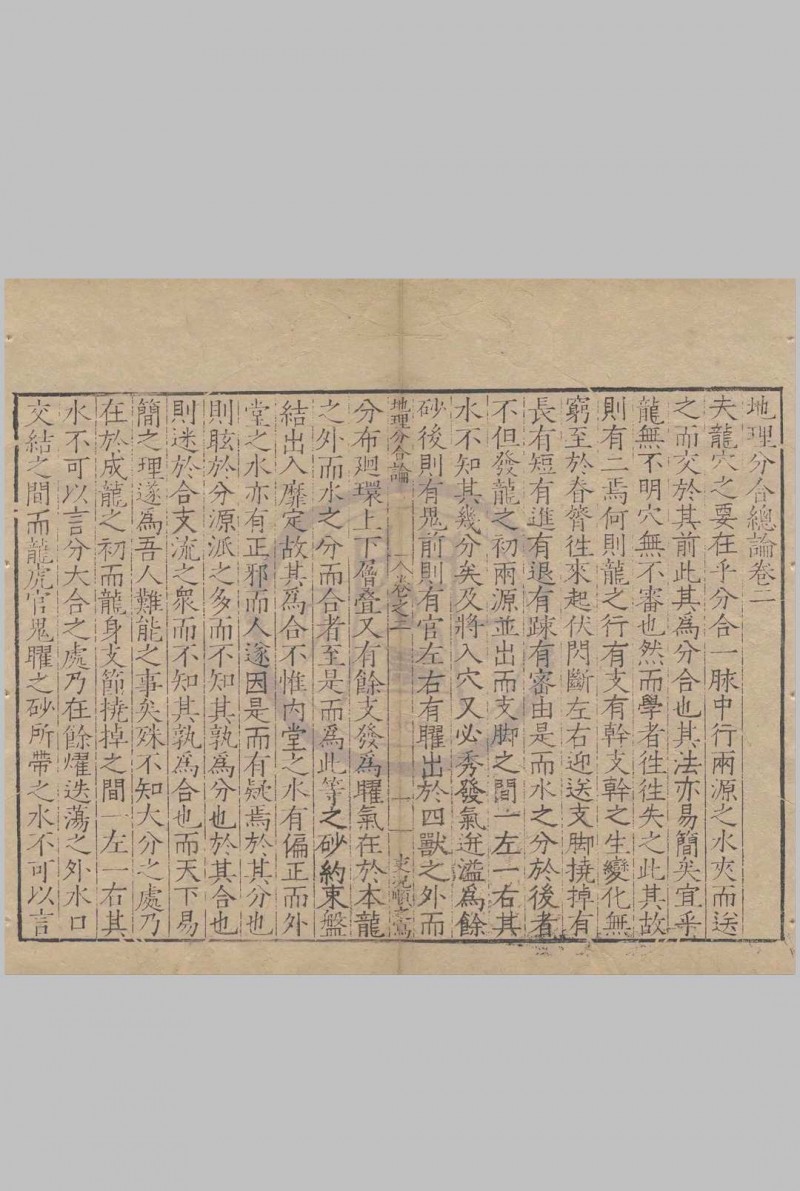 地理分合總論卷二
夫龍穴之要在乎分合一脉中行兩源之水夾而送
之而交於其前此其為分合也其法亦易簡矣宜乎
龍無不明穴無不審也然而學者徃徃失之此其故
則有二焉何則龍之行有支有幹支幹之生變化無
窮至於脊膂徃來起伏閃斷左右迎送支脚撓掉有
長有短有進有退有踈有審由是而水之分於後者
不但發龍之初兩源並出而支脚之間一左一右其
水不知其幾分矣及將入穴又必秀發氣迸溢為餘
砂後則有鬼前則有官左右有曜出於四獸之外而
地理分合論
卷之二
一
吏沈順之寫
分布廻環上下層叠又有餘支發為曜氣在於本龍
之外而水之分而合者至是而為此等之砂約束盤
結出入靡定故其為合不惟内堂之水有偏正而外
堂之水亦有正邪而人遂因是而有疑焉於其分也
則眩於分源派之多而不知其孰為分也於其合也
則迷於合支流之衆而不知其孰為合也而天下易
簡之理遂為吾人難能之事矣殊不知大分之處乃
在於成龍之初而龍身支節撓掉之間一左一右其
水不可以言分大合之處乃在餘燿迭蕩之外水口
交結之間而龍虎官鬼曜之砂所帶之水不可以言